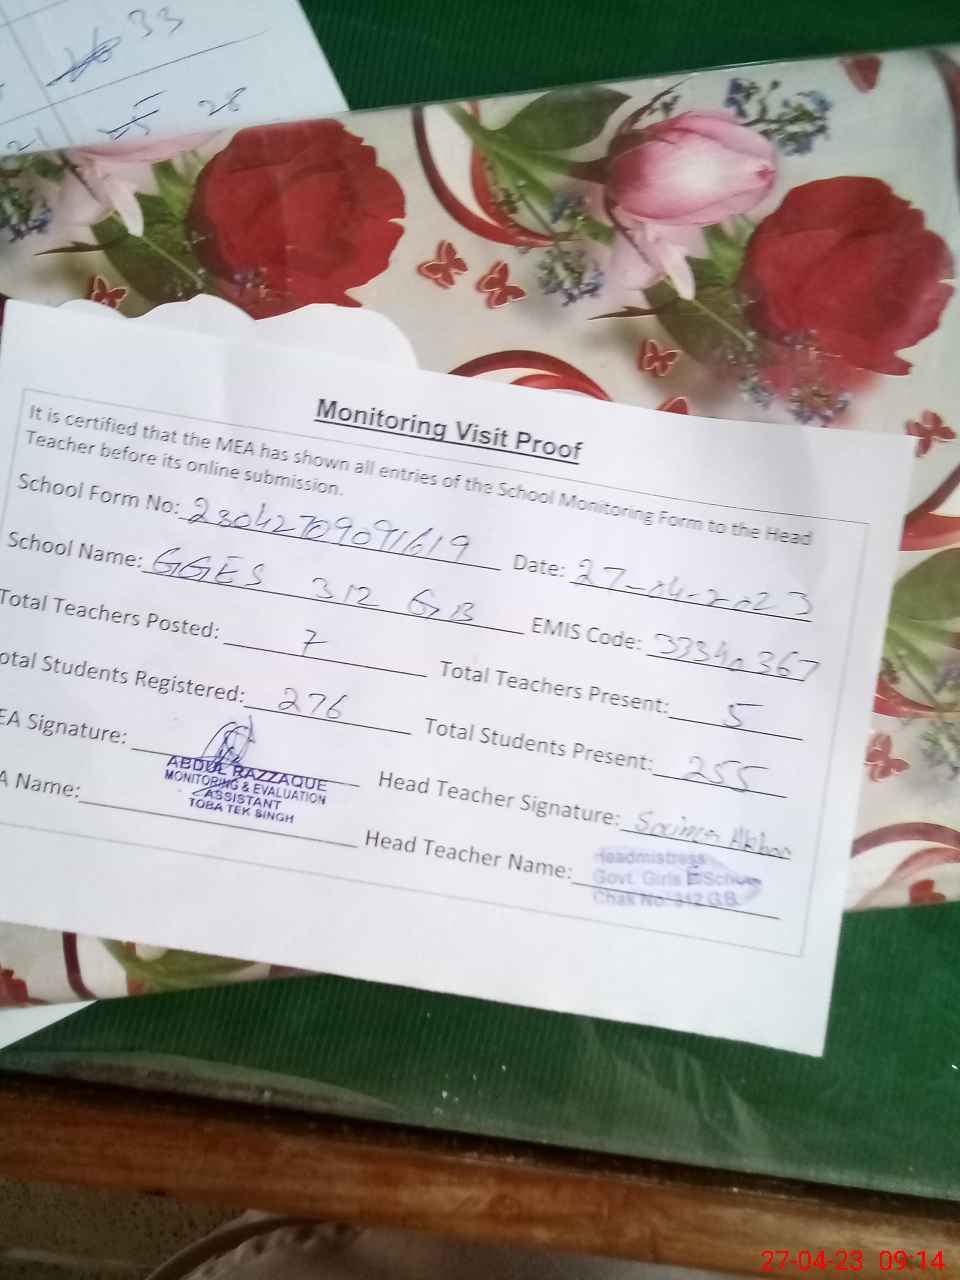 33
28
Monitoring Visit Proof
It is certified that the MEA has shown all entries of the School Monitoring Form to the Head
Teacher before its online submission.
School Form No: 23042709091619 Date: 27-04-2023
School Name: GGES 312 GB EMIS Code: 33340367
Total Teachers Posted: 7 Total Teachers Present: 5
otal Students Registered: 276 Total Students Present: 255
EA Signature: Head Teacher Signature: Akbar
ABDUL RAZZAQUE
MONITORING & EVALUATION
ASSISTANT
TOBA TEK SINGH
A Name: Head Teacher Name:
Headmistress
Govt. Girls E/School
Chak No 312 G.B.
27-04-23 09:14